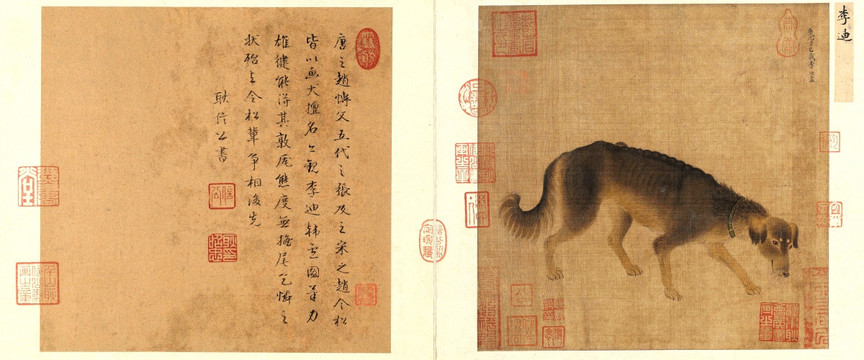 李迪
慶元丁巳歲李迪畫
唐之趙博文五代之張及之宋之趙令松
皆以畫犬擅名今觀李迪韓盧圖筆力
雄健能得其敦厖態度無搖尾乞憐之
狀殆與令松輩爭相後先
耿信公書